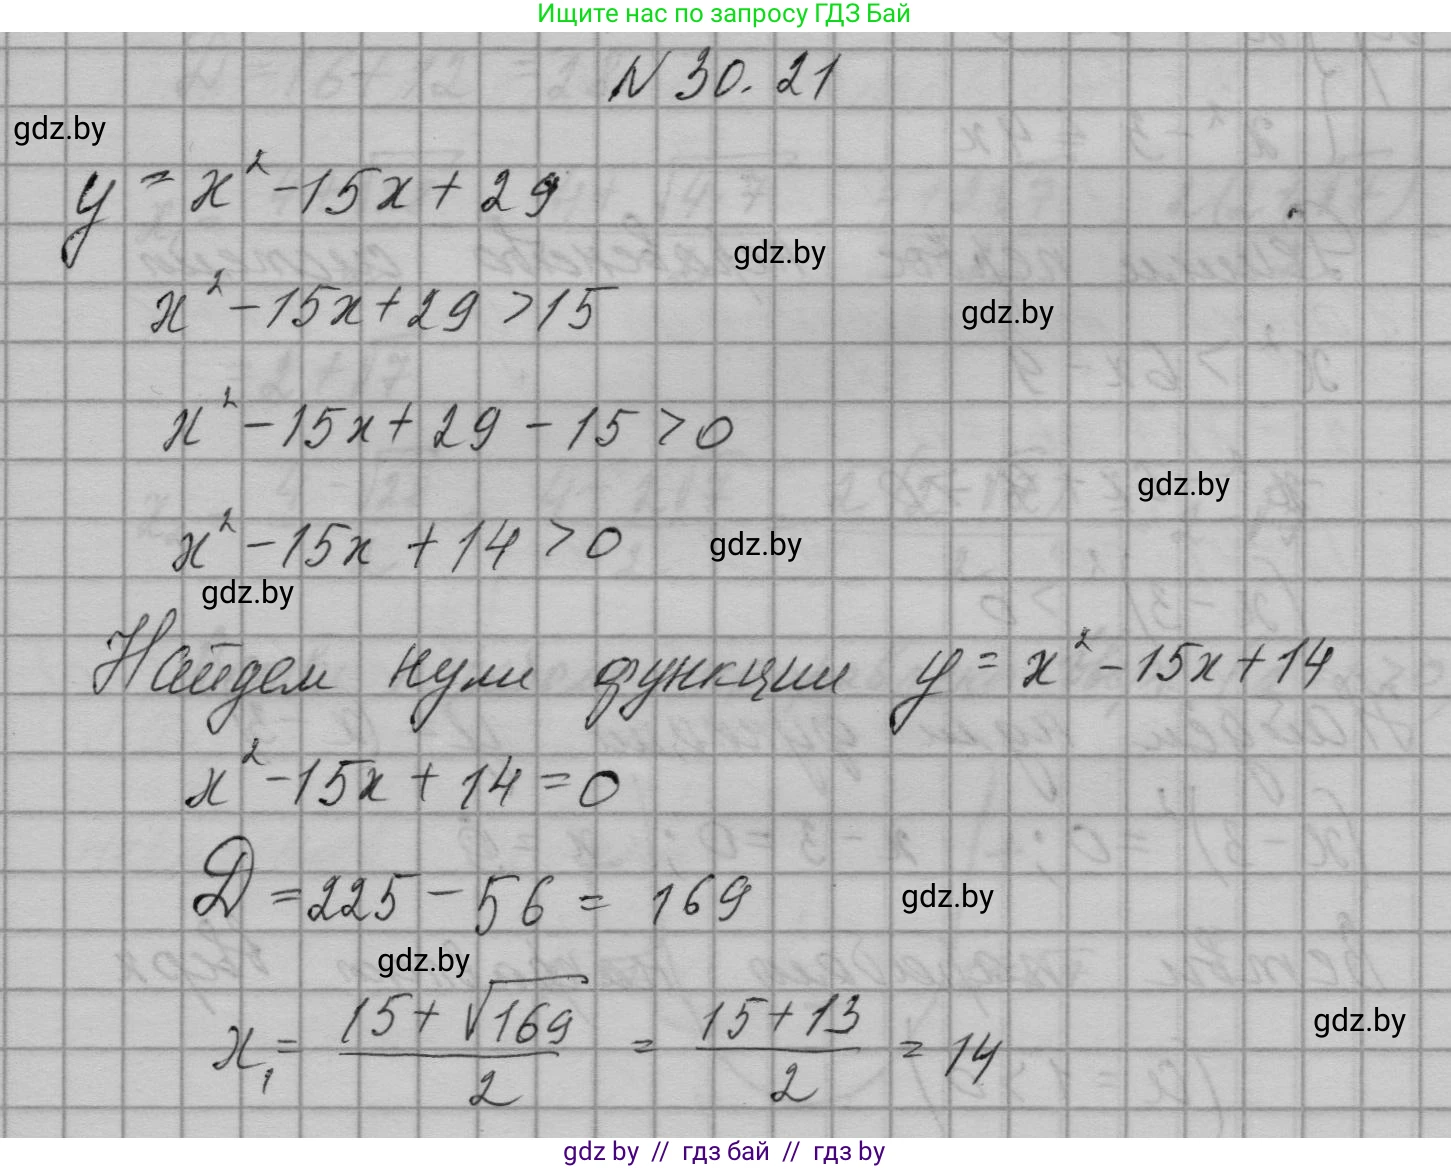 Ищите нас по запросу ГДЗ Бай
N 30.21
gdz.by
y = x² - 15x + 29
gdz.by
x² - 15x + 29 > 15
gdz.by
x² - 15x + 29 - 15 > 0
gdz.by
x² - 15x + 14 > 0
gdz.by
gdz.by
Найдем нули функции y = x² - 15x + 14
x² - 15x + 14 = 0
D = 225 - 56 = 169
gdz.by
gdz.by
x₁ = (15 + √169)/2 = (15 + 13)/2 = 14
gdz.by
gdz by // гдз бай // gdz by